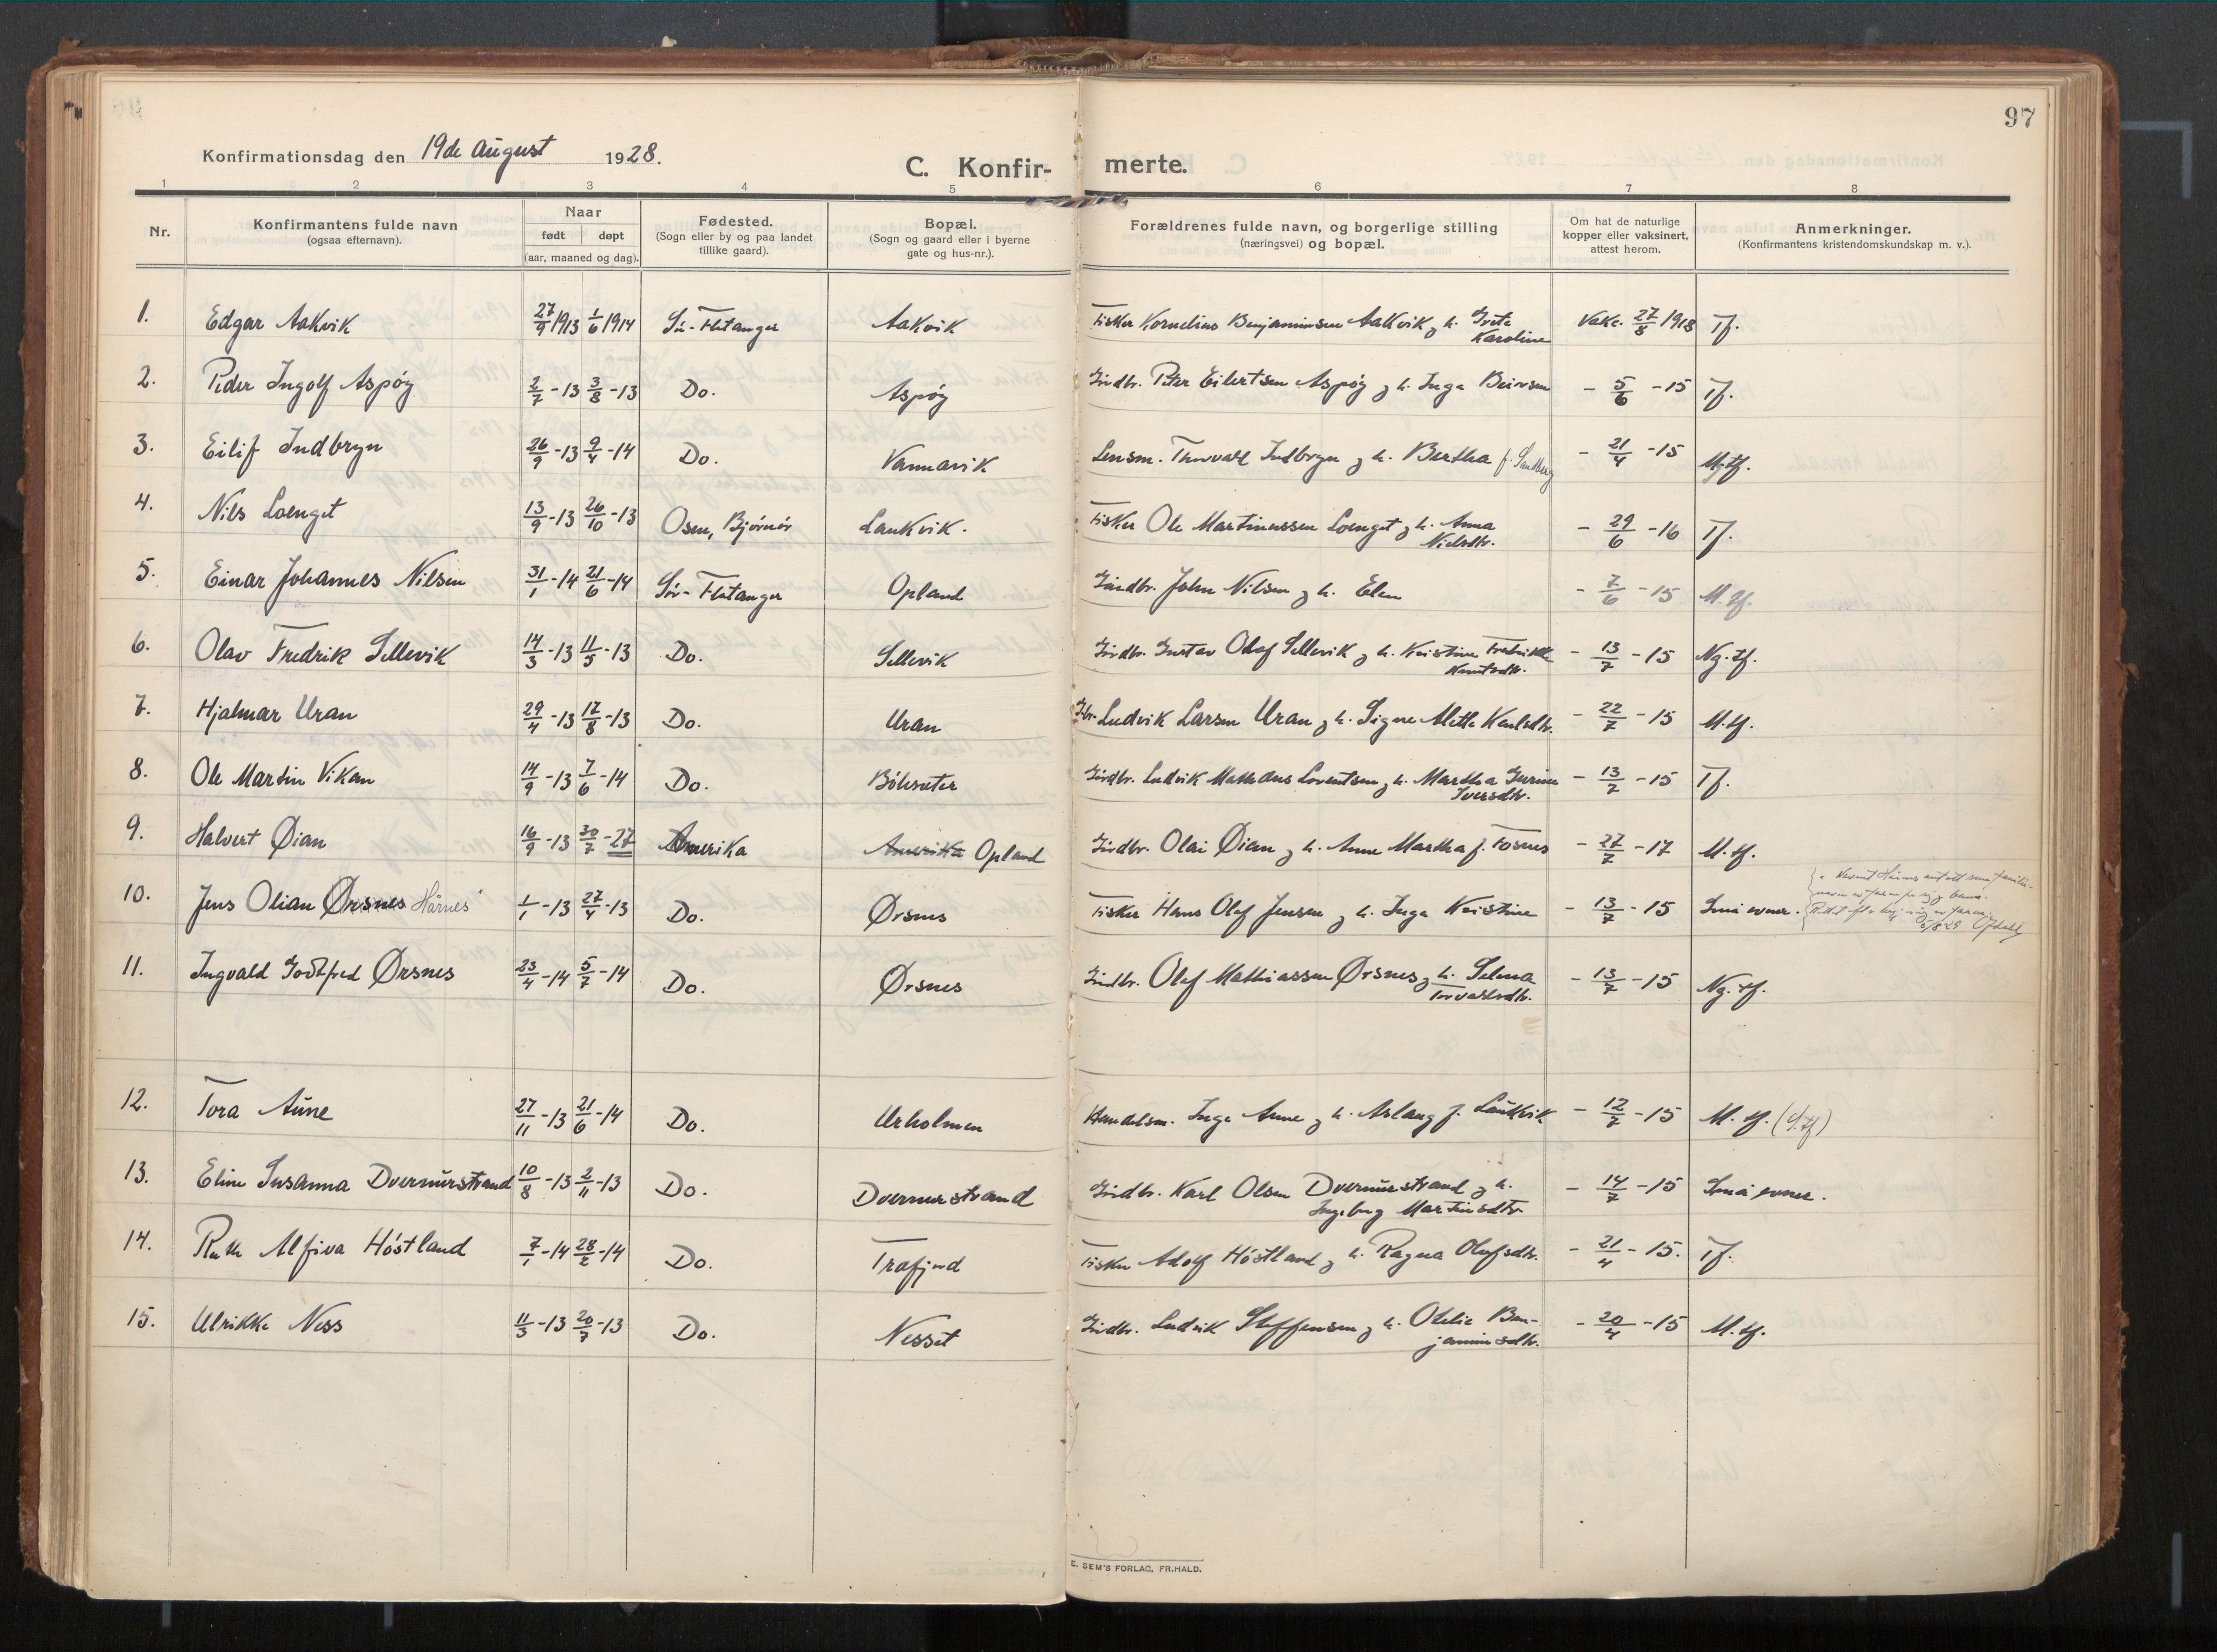 97
Konfirmationsdag den 19de August 1928.
C. Konfir- merte.
1 2 3 4 5 6 7 8
Nr. Konfirmantens fulde navn (ogsaa efternavn). Naar født døpt (aar, maaned og dag). Fødested. (Sogn eller by og paa landet tillike gaard). Bopæl. (Sogn og gaard eller i byerne gate og hus-nr.). Forældrenes fulde navn, og borgerlige stilling (næringsvei) og bopæl. Om hat de naturlige kopper eller vaksinert, attest herom. Anmerkninger. (Konfirmantens kristendomskundskap m. v.).
1. Edgar Aakvik 27/9 1913 1/6 1914 Sør-Flatanger Aakvik Fisker Kornelius Benjaminsen Aakvik og h. Grete Karoline Vakc. 27/8 1918 Tf.
2. Peder Ingolf Aspøy 2/7-13 3/8-13 Do. Aspøy Grdbr. Peter Eilertsen Aspøy og h. Inga - 5/6-15 Tf.
3. Eilif Indbryn 26/9-13 9/4-14 Do. Vannavik Lensm. Thorvald Indbryn og h. Bertha f. Sandberg - 21/4-15 Mgtf.
4. Nils Loenget 13/9-13 26/10-13 Osen, Bjørnør Laukvik. Fisker Ole Martinussen Loenget og h. Anna Nielsdtr. - 29/6-16 Tf.
5. Einar Johannes Nilsen 31/1-14 21/6-14 Sør-Flatanger Opland Grdbr. John Nilsen og h. Elen - 7/6-15 M.tf.
6. Olav Fredrik Sellevik 14/3-13 11/5-13 Do. Sellevik Grdbr. Gustav Olaf Sellevik og h. Kristine Fredrikke Knutsdtr. - 13/7-15 Ng.tf.
7. Hjalmar Uran 29/4-13 17/8-13 Do. Uran Gbr. Ludvik Larsen Uran og h. Signe Alette Karlsdtr. - 22/7-15 M.tf.
8. Ole Martin Vikan 14/9-13 7/6-14 Do. Bølesæter Grdbr. Ludvik Mathæus Lorentsen og h. Martha Gurine Iversdtr. - 13/7-15 Tf.
9. Halvert Øian 16/9-13 30/7-27 Amerika Amerika Opland Grdbr. Olai Øian og h. Anne Martha f. Fosnes - 27/7-17 M.tf.
10. Jens Olian Ørsnes Hårnes 1/1-13 27/4-13 Do. Ørsnes Fisker Hans Olef Jensen og h. Inga Kristine - 13/7-15 Små evner. 5/8 29
11. Ingvald Godtfred Ørsnes 23/4-14 5/7-14 Do. Ørsnes Grdbr. Olef Mathiassen Ørsnes og h. Selma Torvaldsdtr. - 13/7-15 Ng.tf.
12. Tora Aune 27/11-13 21/6-14 Do. Urholmen Handelsm. Inge Aune og h. Aslaug f. Laukvik - 12/7-15 M.tf. (S.tf)
13. Eline Susanna Dvernurstrand 10/8-13 2/11-13 Do. Dvernurstrand Grdbr. Karl Olsen Dvernurstrand og h. Ingeborg Martinsdtr - 14/7-15 Små evner.
14. Ruth Alfiva Høstland 7/1-14 28/2-14 Do. Trafjord Fisker Adolf Høstland og h. Ragna Olufsdtr. - 21/4-15. Tf.
15. Ulrikke Ness 11/3-13 20/7-13 Do. Nesset Grdbr. Ludvik Steffensen og h. Odelie Benjaminsdtr. - 20/4-15 M.tf.
E. SEM'S FORLAG, FR.HALD.